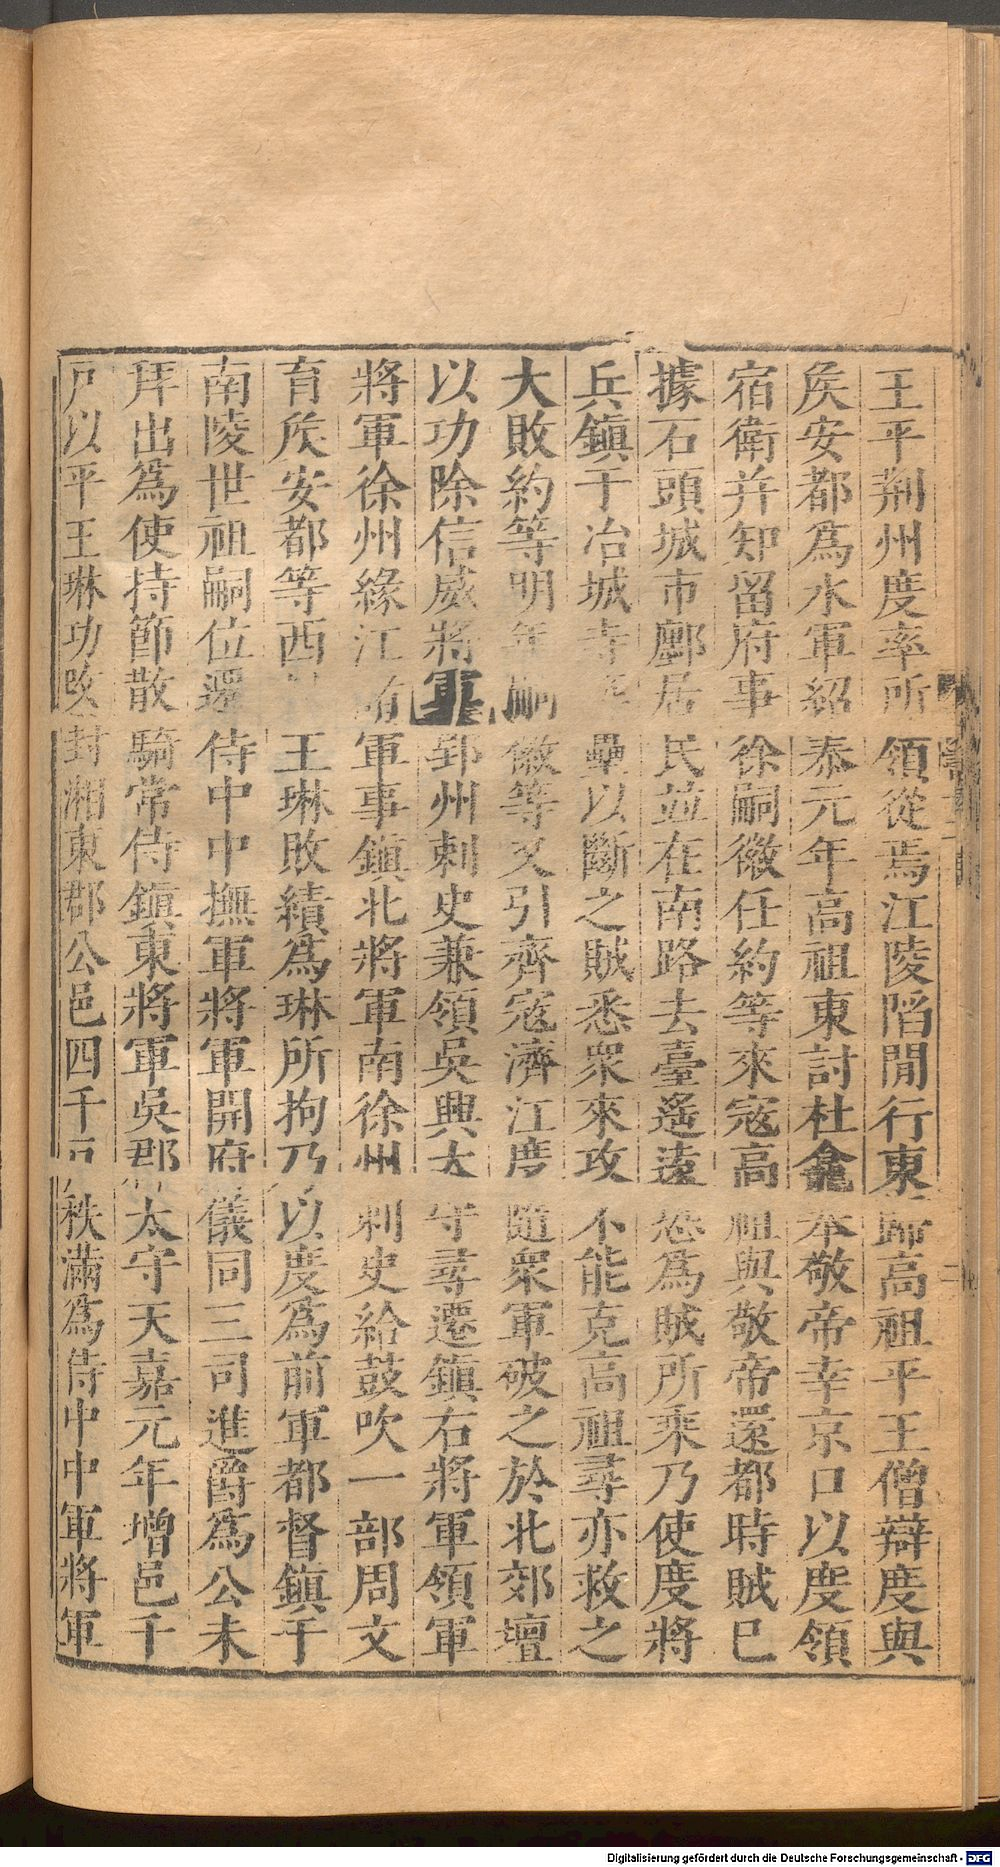 王平荆州度率所領從焉江陵陷閒行東歸高祖平王僧辯度與
矦安都爲水軍紹泰元年高祖東討杜龕奉敬帝幸京口以度領
宿衛并知留府事徐嗣徽任約等來寇高祖與敬帝還都時賊巳
據石頭城市廛居民並在南路去臺遙遠恐爲賊所乘乃使度將
兵鎭于冶城寺 壘以斷之賊悉衆來攻不能克高祖尋亦救之
大敗約等明年嗣徽等又引齊寇濟江度隨衆軍破之於北郊壇
以功除信威將軍郢州刺史兼領吳興太守尋遷鎭右將軍領軍
將軍徐州緣江 軍事鎭北將軍南徐州刺史給鼓吹一部周文
育矦安都等西 王琳敗績爲琳所拘乃以度爲前軍都督鎭于
南陵世祖嗣位遷侍中中撫軍將軍開府儀同三司進爵爲公未
拜出爲使持節散騎常侍鎭東將軍吳郡太守天嘉元年增邑千
戸以平王琳功改封湘東郡公邑四千戸秩滿爲侍中中軍將軍
Digitalisierung gefördert durch die Deutsche Forschungsgemeinschaft - DFG